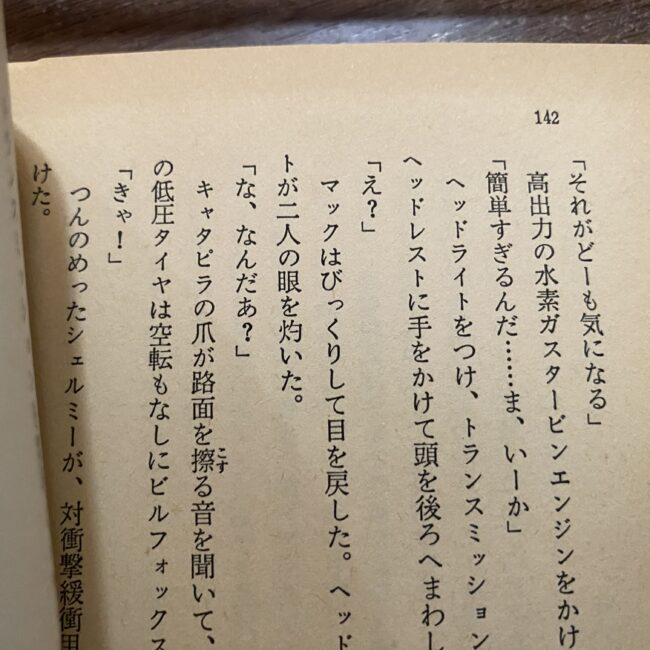 142
「それがどーも気になる」
高出力の水素ガスタービンエンジンをかけ
「簡単すぎるんだ……ま、いーか」
ヘッドライトをつけ、トランスミッション
ヘッドレストに手をかけて頭を後ろへまわし
「え？」
マックはびっくりして目を戻した。ヘッド
トが二人の眼を灼いた。
「な、なんだあ？」
キャタピラの爪が路面を擦る音を聞いて、
こす
の低圧タイヤは空転もなしにビルフォックス
「きゃ！」
つんのめったシェルミーが、対衝撃緩衝用
けた。